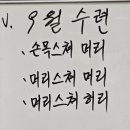 V. 9월 수련
· 손목스쳐 머리
· 머리스쳐 머리
· 머리스쳐 허리